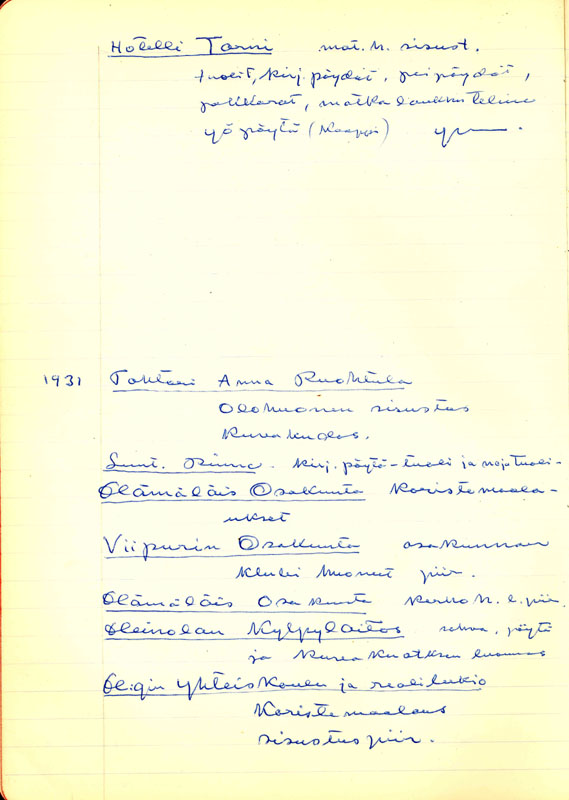 Hotelli Torni mat. h. sisust.
tuolit, kirj. pöydät, peipöydät,
pakkarat, matkalaukku teline
yöpöytä (kaappi) ym.
1931 Tohtori Anna Ruohtula
Olohuoneen sisustus
Kuvakudos.
Kirj. pöytä-tuoli ja nojatuoli-
Hämäläis Osakunta Koristemaala-
ukset
Viipurin Osakunta osakunnan
klubi huoneet piir.
Hämäläis Osakunta Kerho h. piir.
Heinolan Kylpylaitos sohva, pöytä
ja kuvakudoksen luonnos
yhteiskoulu ja realilukio
Koristemaalaus
sisustuspiir.